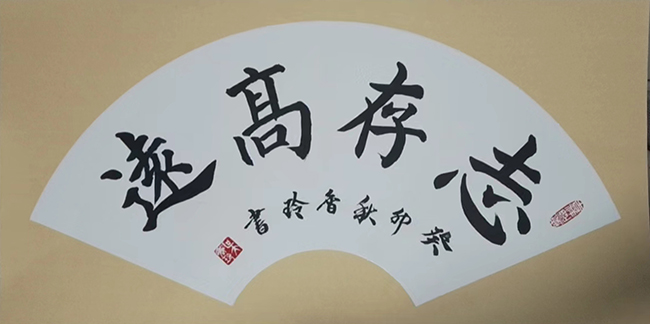 志存高遠
癸卯秋香玲書